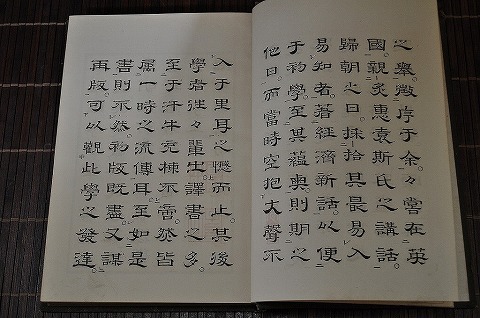 之舉徵序于余。々嘗在英
國。親炙惠袁斯氏之講話。
歸朝之日。採拾其最易入
易知者。著経濟新話。以便
于初學。至其蘊奥則期之
他日。而當時空抱大聲不
入于里耳之憾而止。其後
學者往々輩出。譯書之多。
至于汗牛充棟不啻。然皆
属一時之流傳耳。至如是
書則不然。初版既盡。又謀
再版。可以觀此學之發達。